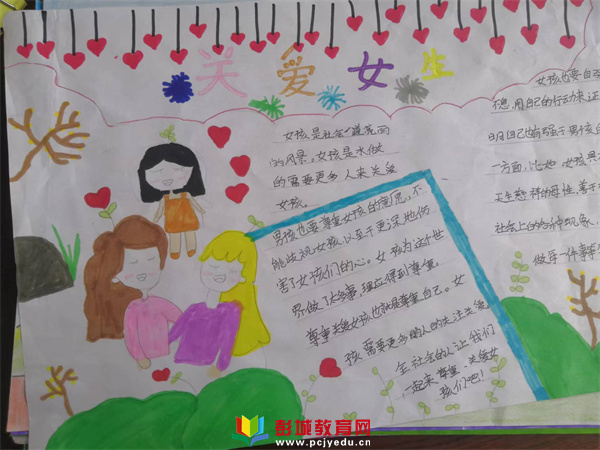 关爱女生
女孩是社会一道亮丽
的风景。女孩是水做
的需要更多人来关爱
女孩。
男孩也要尊重女孩的意愿，不
能歧视女孩，以至于更深地伤
害了女孩们的心。女孩为这个世
界做了太多事，理应得到尊重。
尊重关爱女孩也就是尊重自己。女
孩需要更多的人的关注关爱
全社会的人让我们
一起来尊重、关爱女
孩们吧！
女孩也要自强
不息，用自己的行动来证
明自己也
一方面，比如，女孩
社会上的
彭城教育网
www.pcjyedu.cn